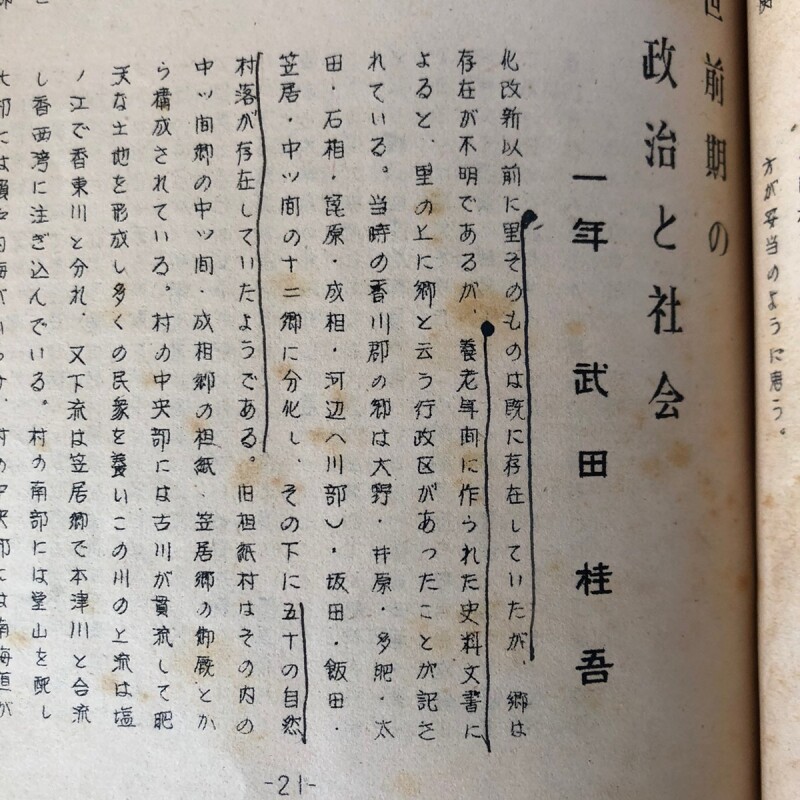 方が妥当のように思う。
世前期の
政治と社会
一年 武田桂吾
化改新以前に里そのものは既に存在していたが、郷は
存在が不明であるが、養老年間に作られた史料文書に
よると、里の上に郷と云う行政区があったことが記さ
れている。当時の香川郡の郷は大野・井原・多肥・太
田・石相・箆原・成相・河辺(川部)・坂田・飯田・
笠居・中ツ間の十二郷に分化し、その下に五十の自然
村落が存在していたようである。旧祖紙村はその内の
中ツ間郷の中ツ間・成相郷の祖紙・笠居郷の御厩とか
ら構成されている。村の中央部には古川が貫流して肥
沃な土地を形成し多くの民衆を養いこの川の上流は塩
ノ江で香東川と分れ、又下流は笠居郷で本津川と合流
し香西湾に注ぎ込んでいる。村の南部には堂山を配し
村の中央部には南海道が
-21-